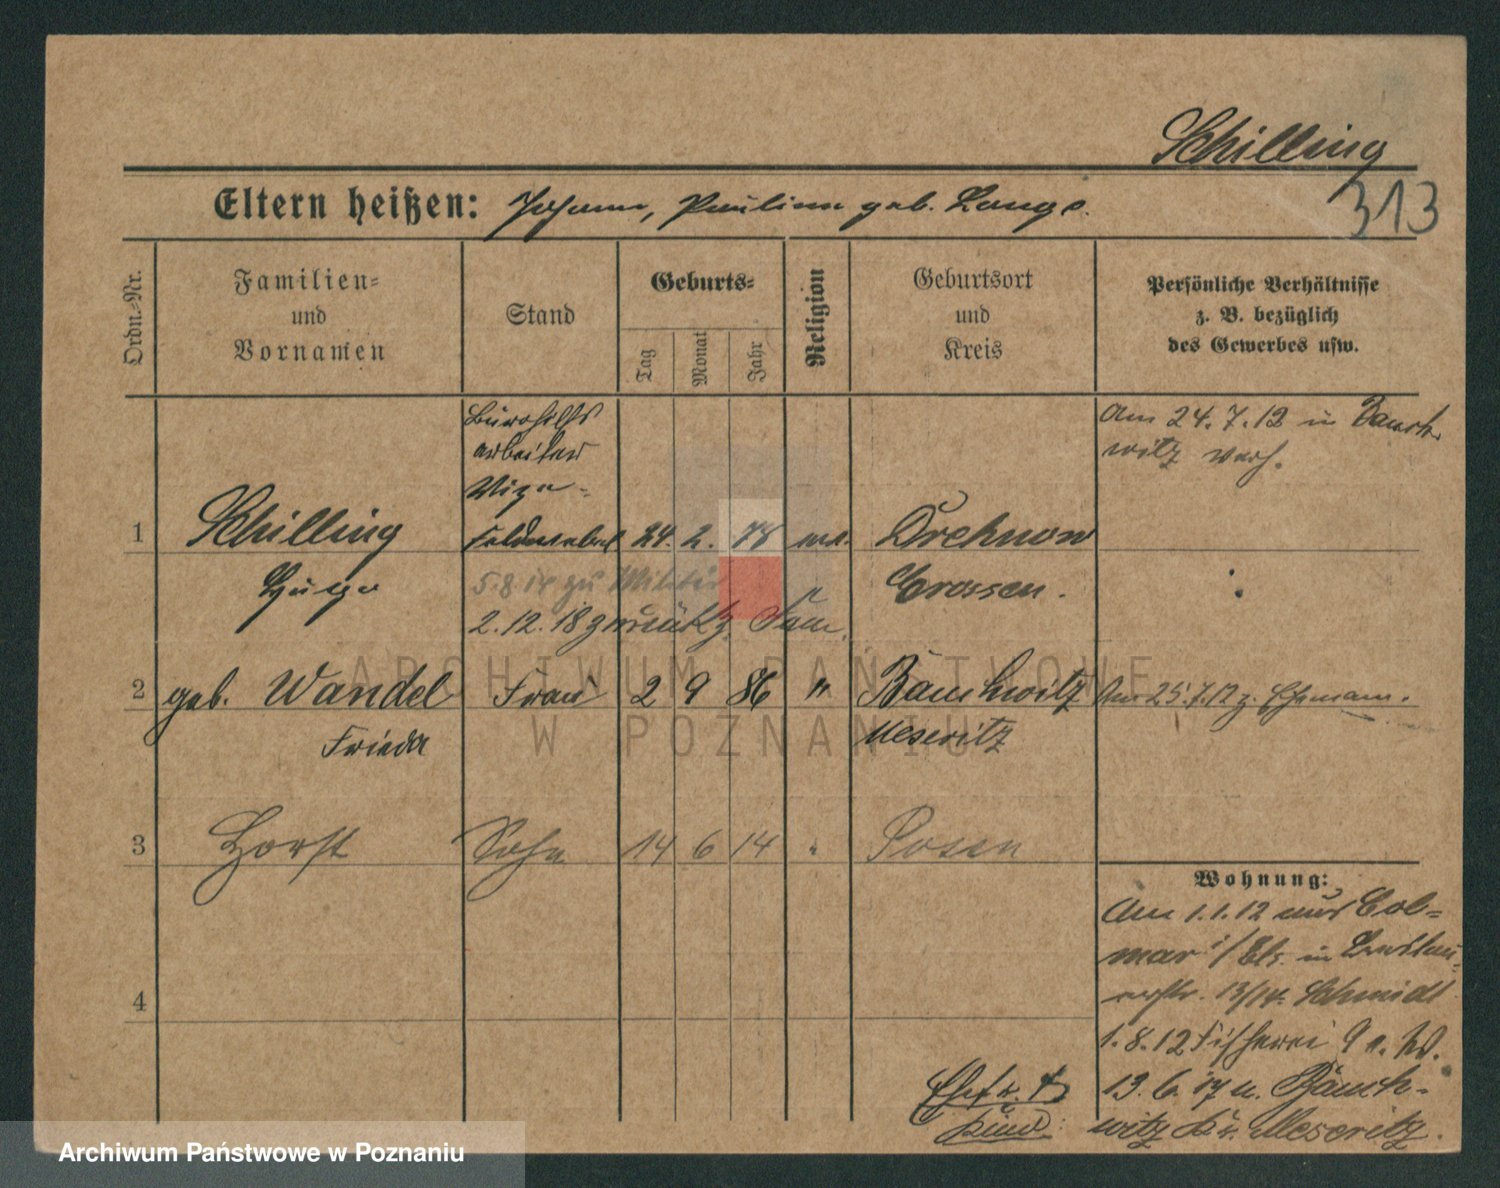 Schilling
313
Eltern heißen: Johann, Pauline geb. Lange.
Ordn.-Nr.
Familien- und Vornamen
Stand
Geburts-
Tag
Monat
Jahr
Religion
Geburtsort und Kreis
Persönliche Verhältnisse
z. B. bezüglich
des Gewerbes usw.
Bürohilfs
arbeiter
Vize-
Am 24.7.12 in Bauch
witz verh.
1 Schilling feldwebel 24. 2. 78 Drehnow
Hugo 5.8.14 zu Militär Crossen.
2.12.18 zurück
2 geb. Wandel Frau 2 9 86 " Bauchwitz Am 25.7.12 z. Ehemann.
Frieda Meseritz
3 Horst Sohn 14 6 14 " Posen
Wohnung:
Am 1.1.12 aus Col-
mar i/Els. in
13/14. Schmidt
4
1.8.12 Fischerei 9
Ehefr. u. 13.6.17 n. Bauch-
Kind witz Kr. Meseritz.
ARCHIWUM PAŃSTWOWE
W POZNANIU
Archiwum Państwowe w Poznaniu